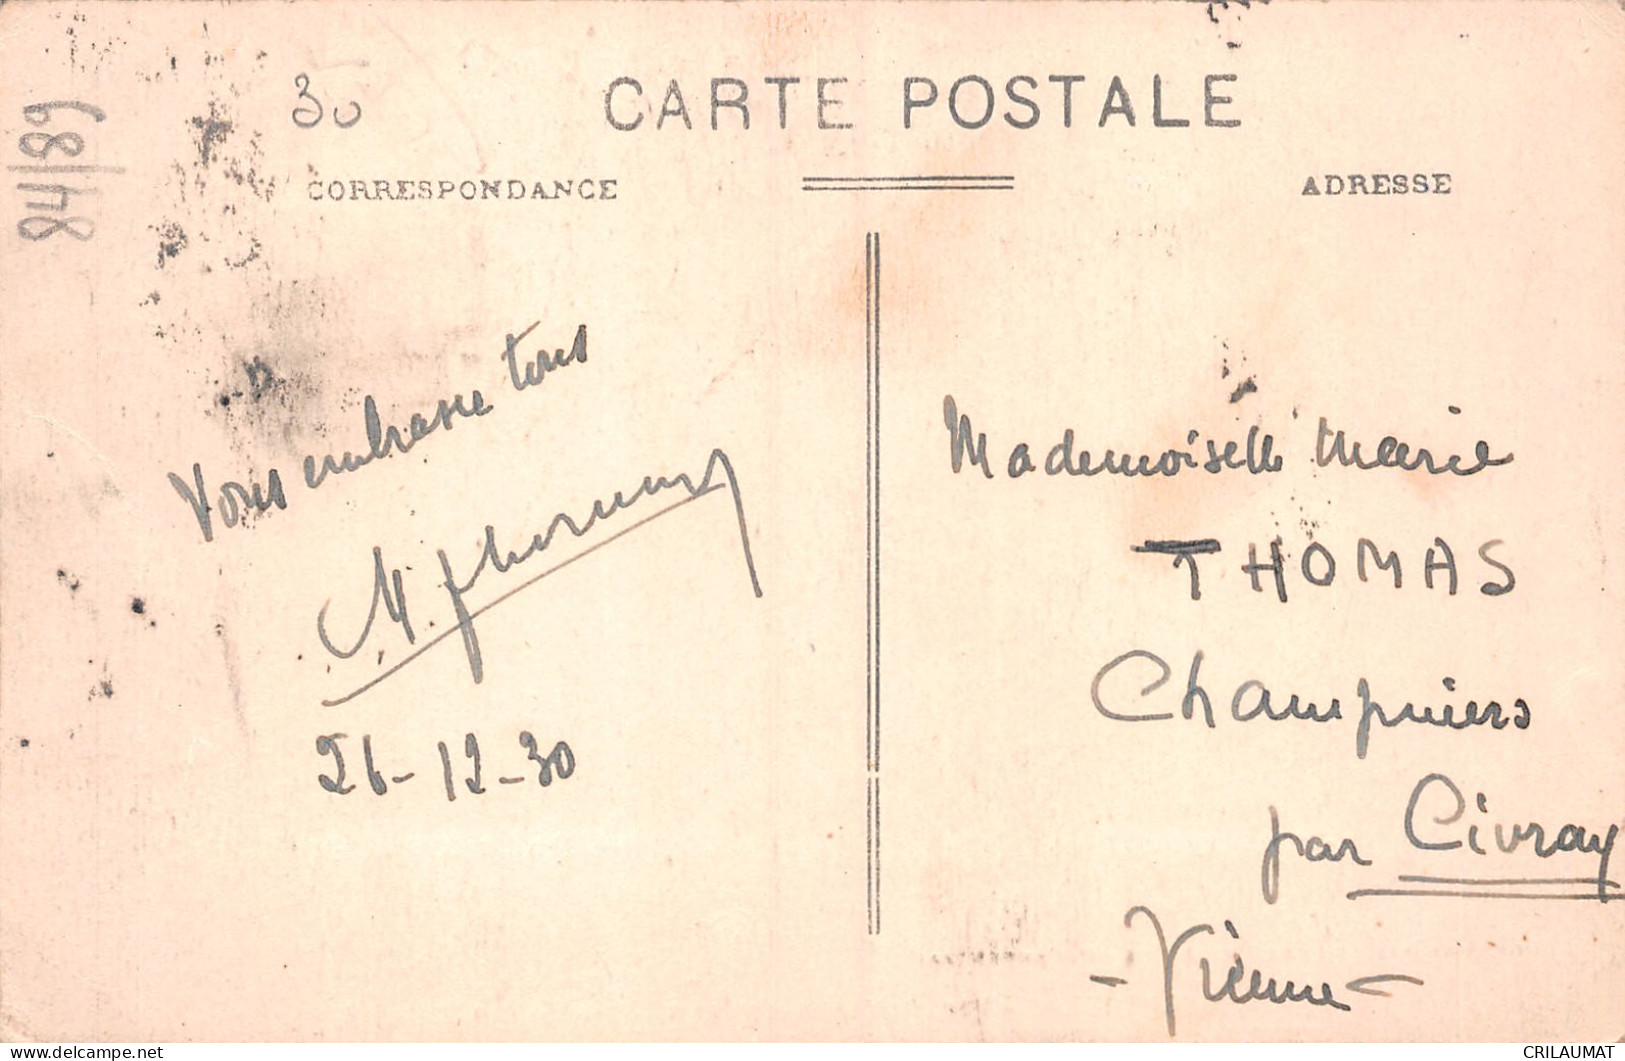 84/89
30
CARTE POSTALE
CORRESPONDANCE
ADRESSE
Vous embrasse tous
M.
26-12-30
Mademoiselle Marie
THOMAS
Champniers
par Civray
- Vienne -
CRILAUMAT